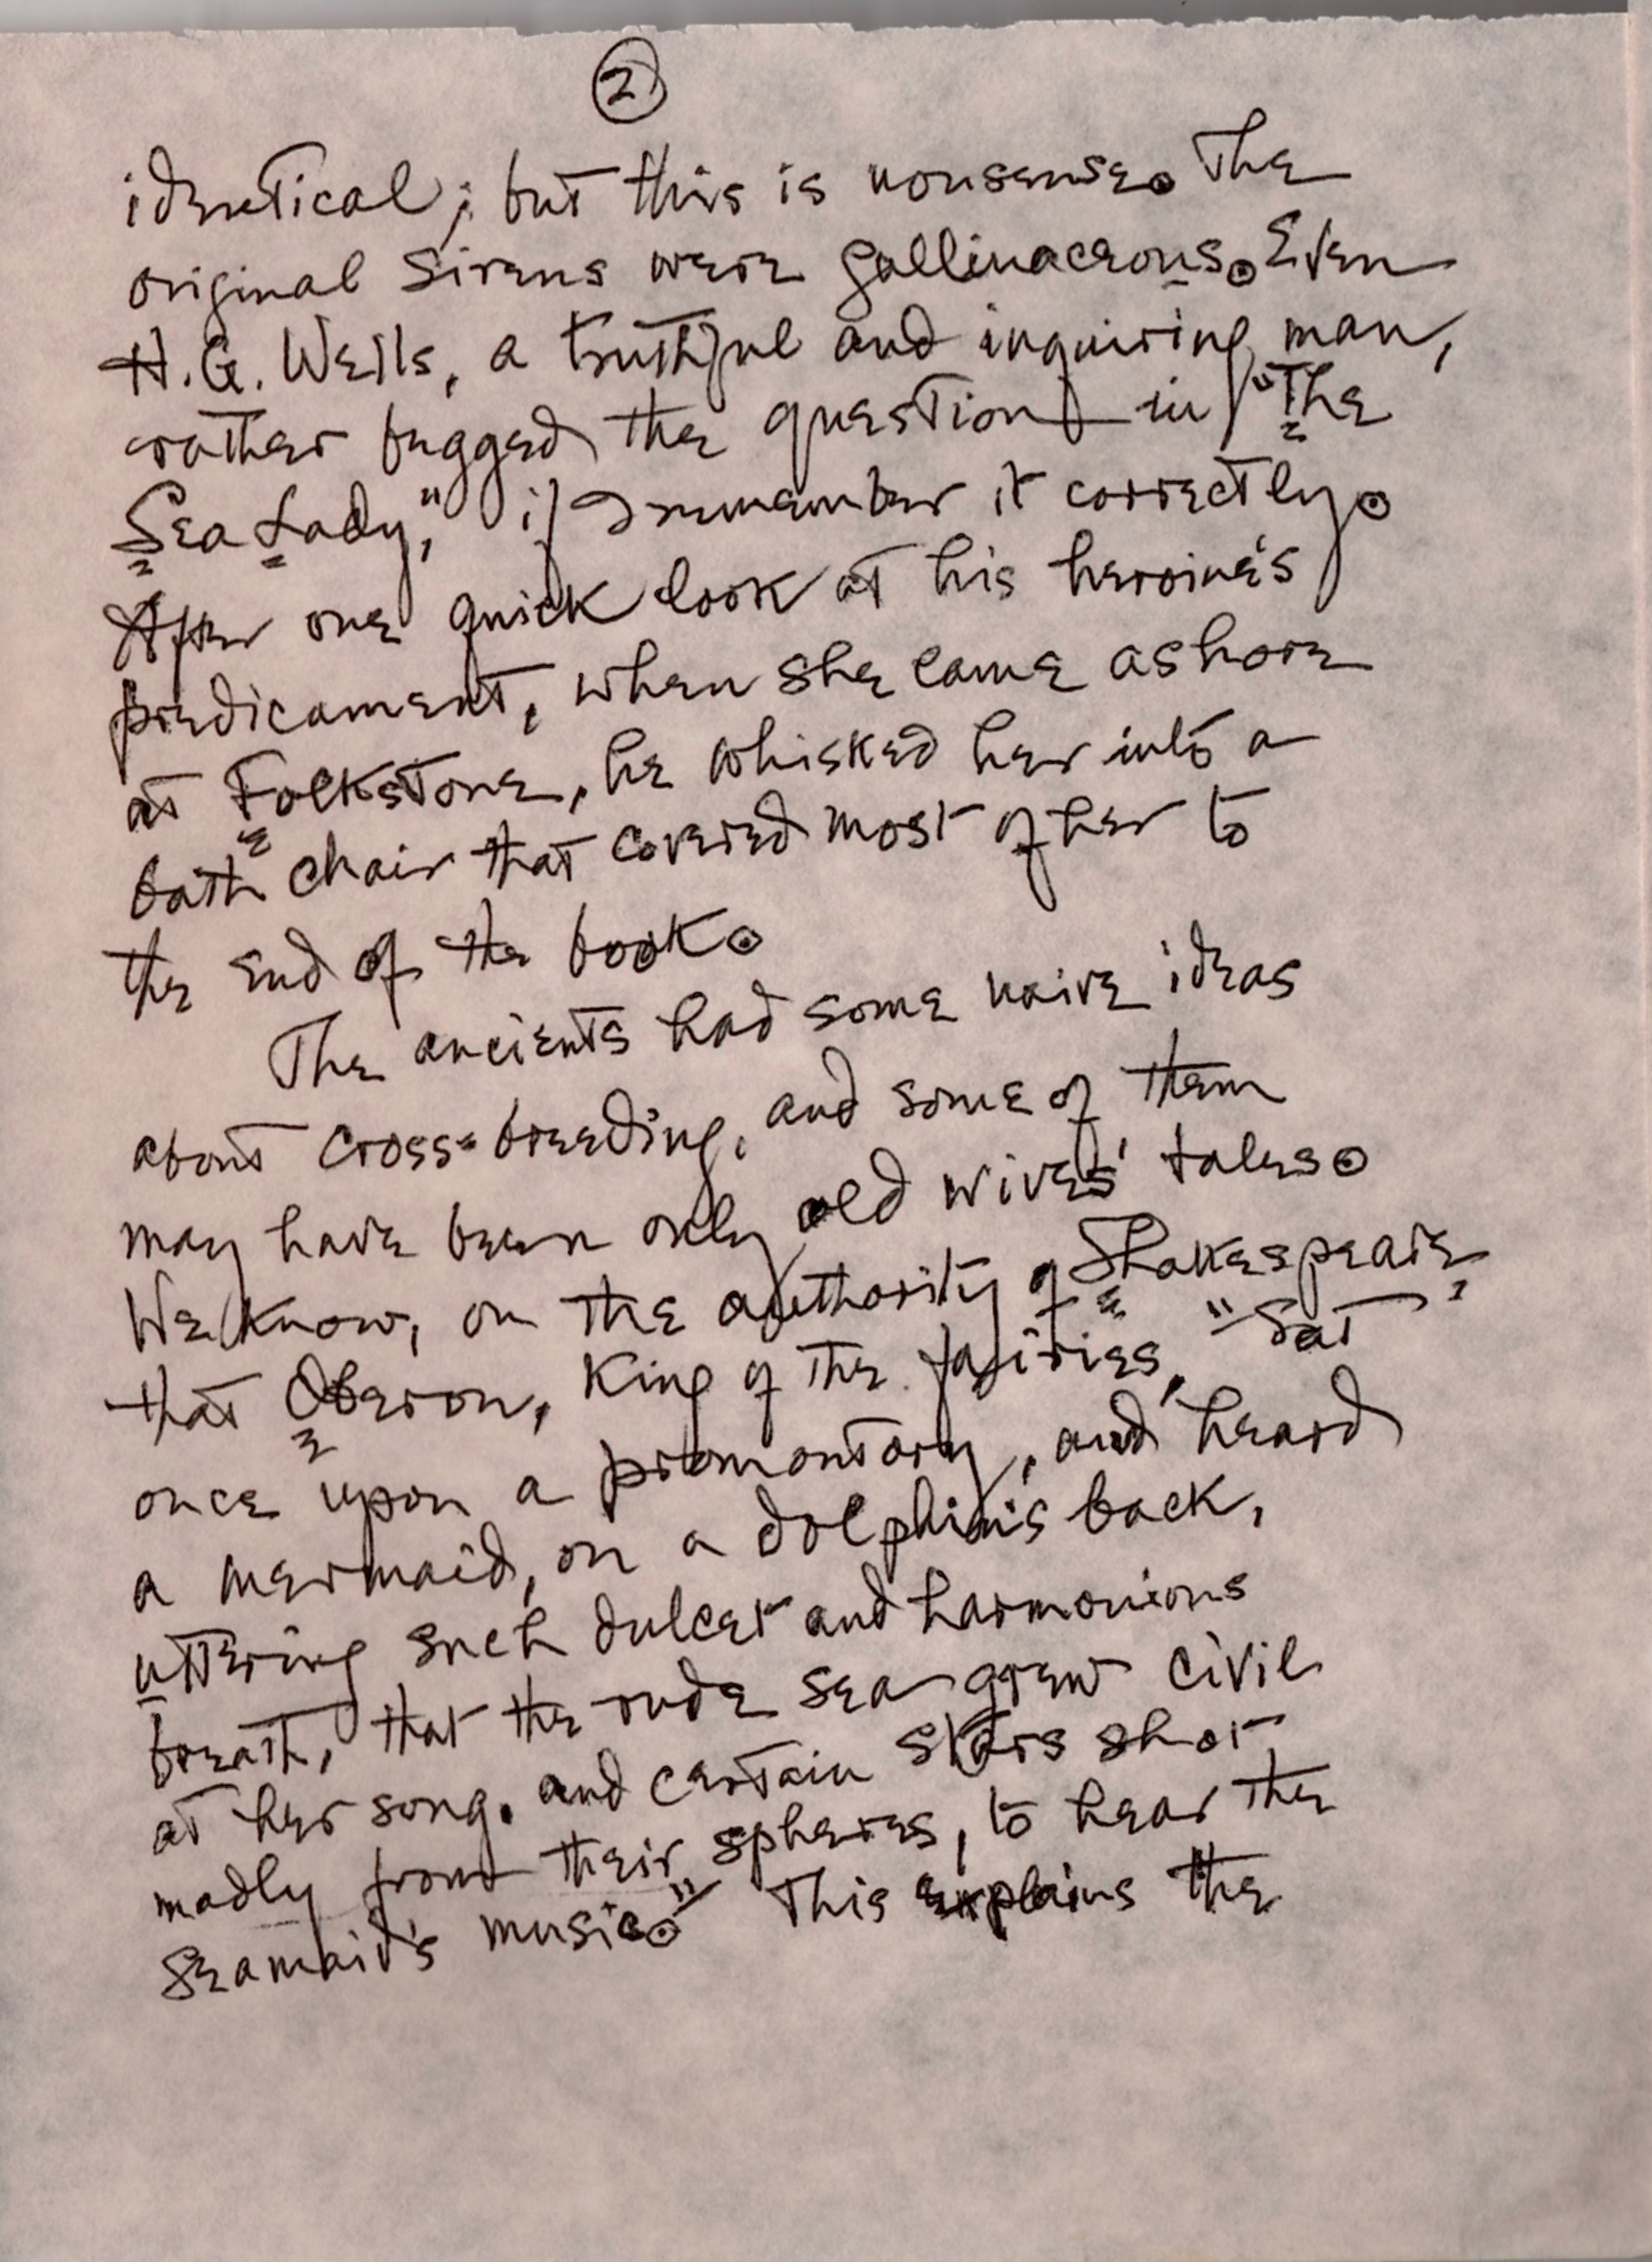 2
identical; but this is nonsense. The
original Sirens were gallinaceous. Even
H.G. Wells, a truthful and inquiring man,
rather bugged the question in "The
Sea Lady," if I remember it correctly.
After one quick look at his heroine's
predicament, when she came ashore
at Folkstone, he whisked her into a
bath chair that covered most of her to
the end of the book.
The ancients had some naive ideas
about cross-breeding, and some of them
may have been only old wives' tales.
We know, on the authority of Shakespeare,
that Oberon, King of the fairies, "sat
once upon a promontory, and heard
a mermaid, on a dolphin's back,
uttering such dulcet and harmonious
breath, that the rude sea grew civil
at her song. and certain stars shot
madly from their spheres, to hear the
seamaid's music." This explains the